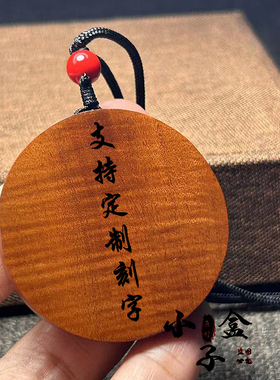 支持定制刻字
小盒子